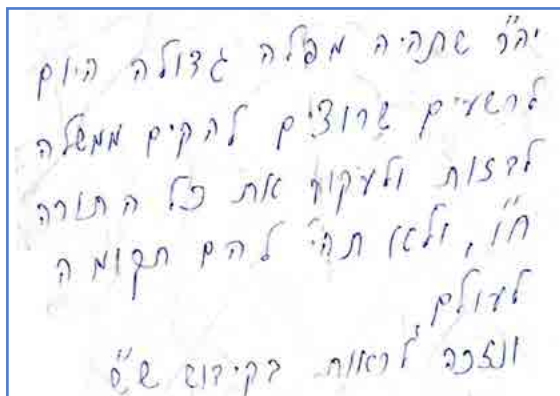 יה"ר שתהיה מפלה גדולה היום
לרשעים שרוצים להקים ממשלה
לבזות ולעקור את כל התורה
ח"ו, ולא תהי' להם תקומה
לעולם
ונזכה לראות בקידוש ש"ש